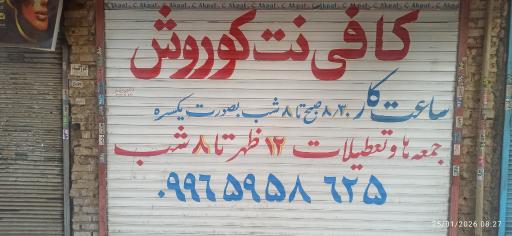 C Akpaf . C Akpaf . C Akpaf . C Akpaf . C Akpaf
کافی نت کوروش
ساعت کار ۸/۳۰ صبح تا ۸ شب بصورت یکسره
جمعه ها و تعطیلات ۱۲ ظهر تا ۸ شب
۰۹۹۶۵۹۵۸ ۶۲۵
25/01/2026 08:27